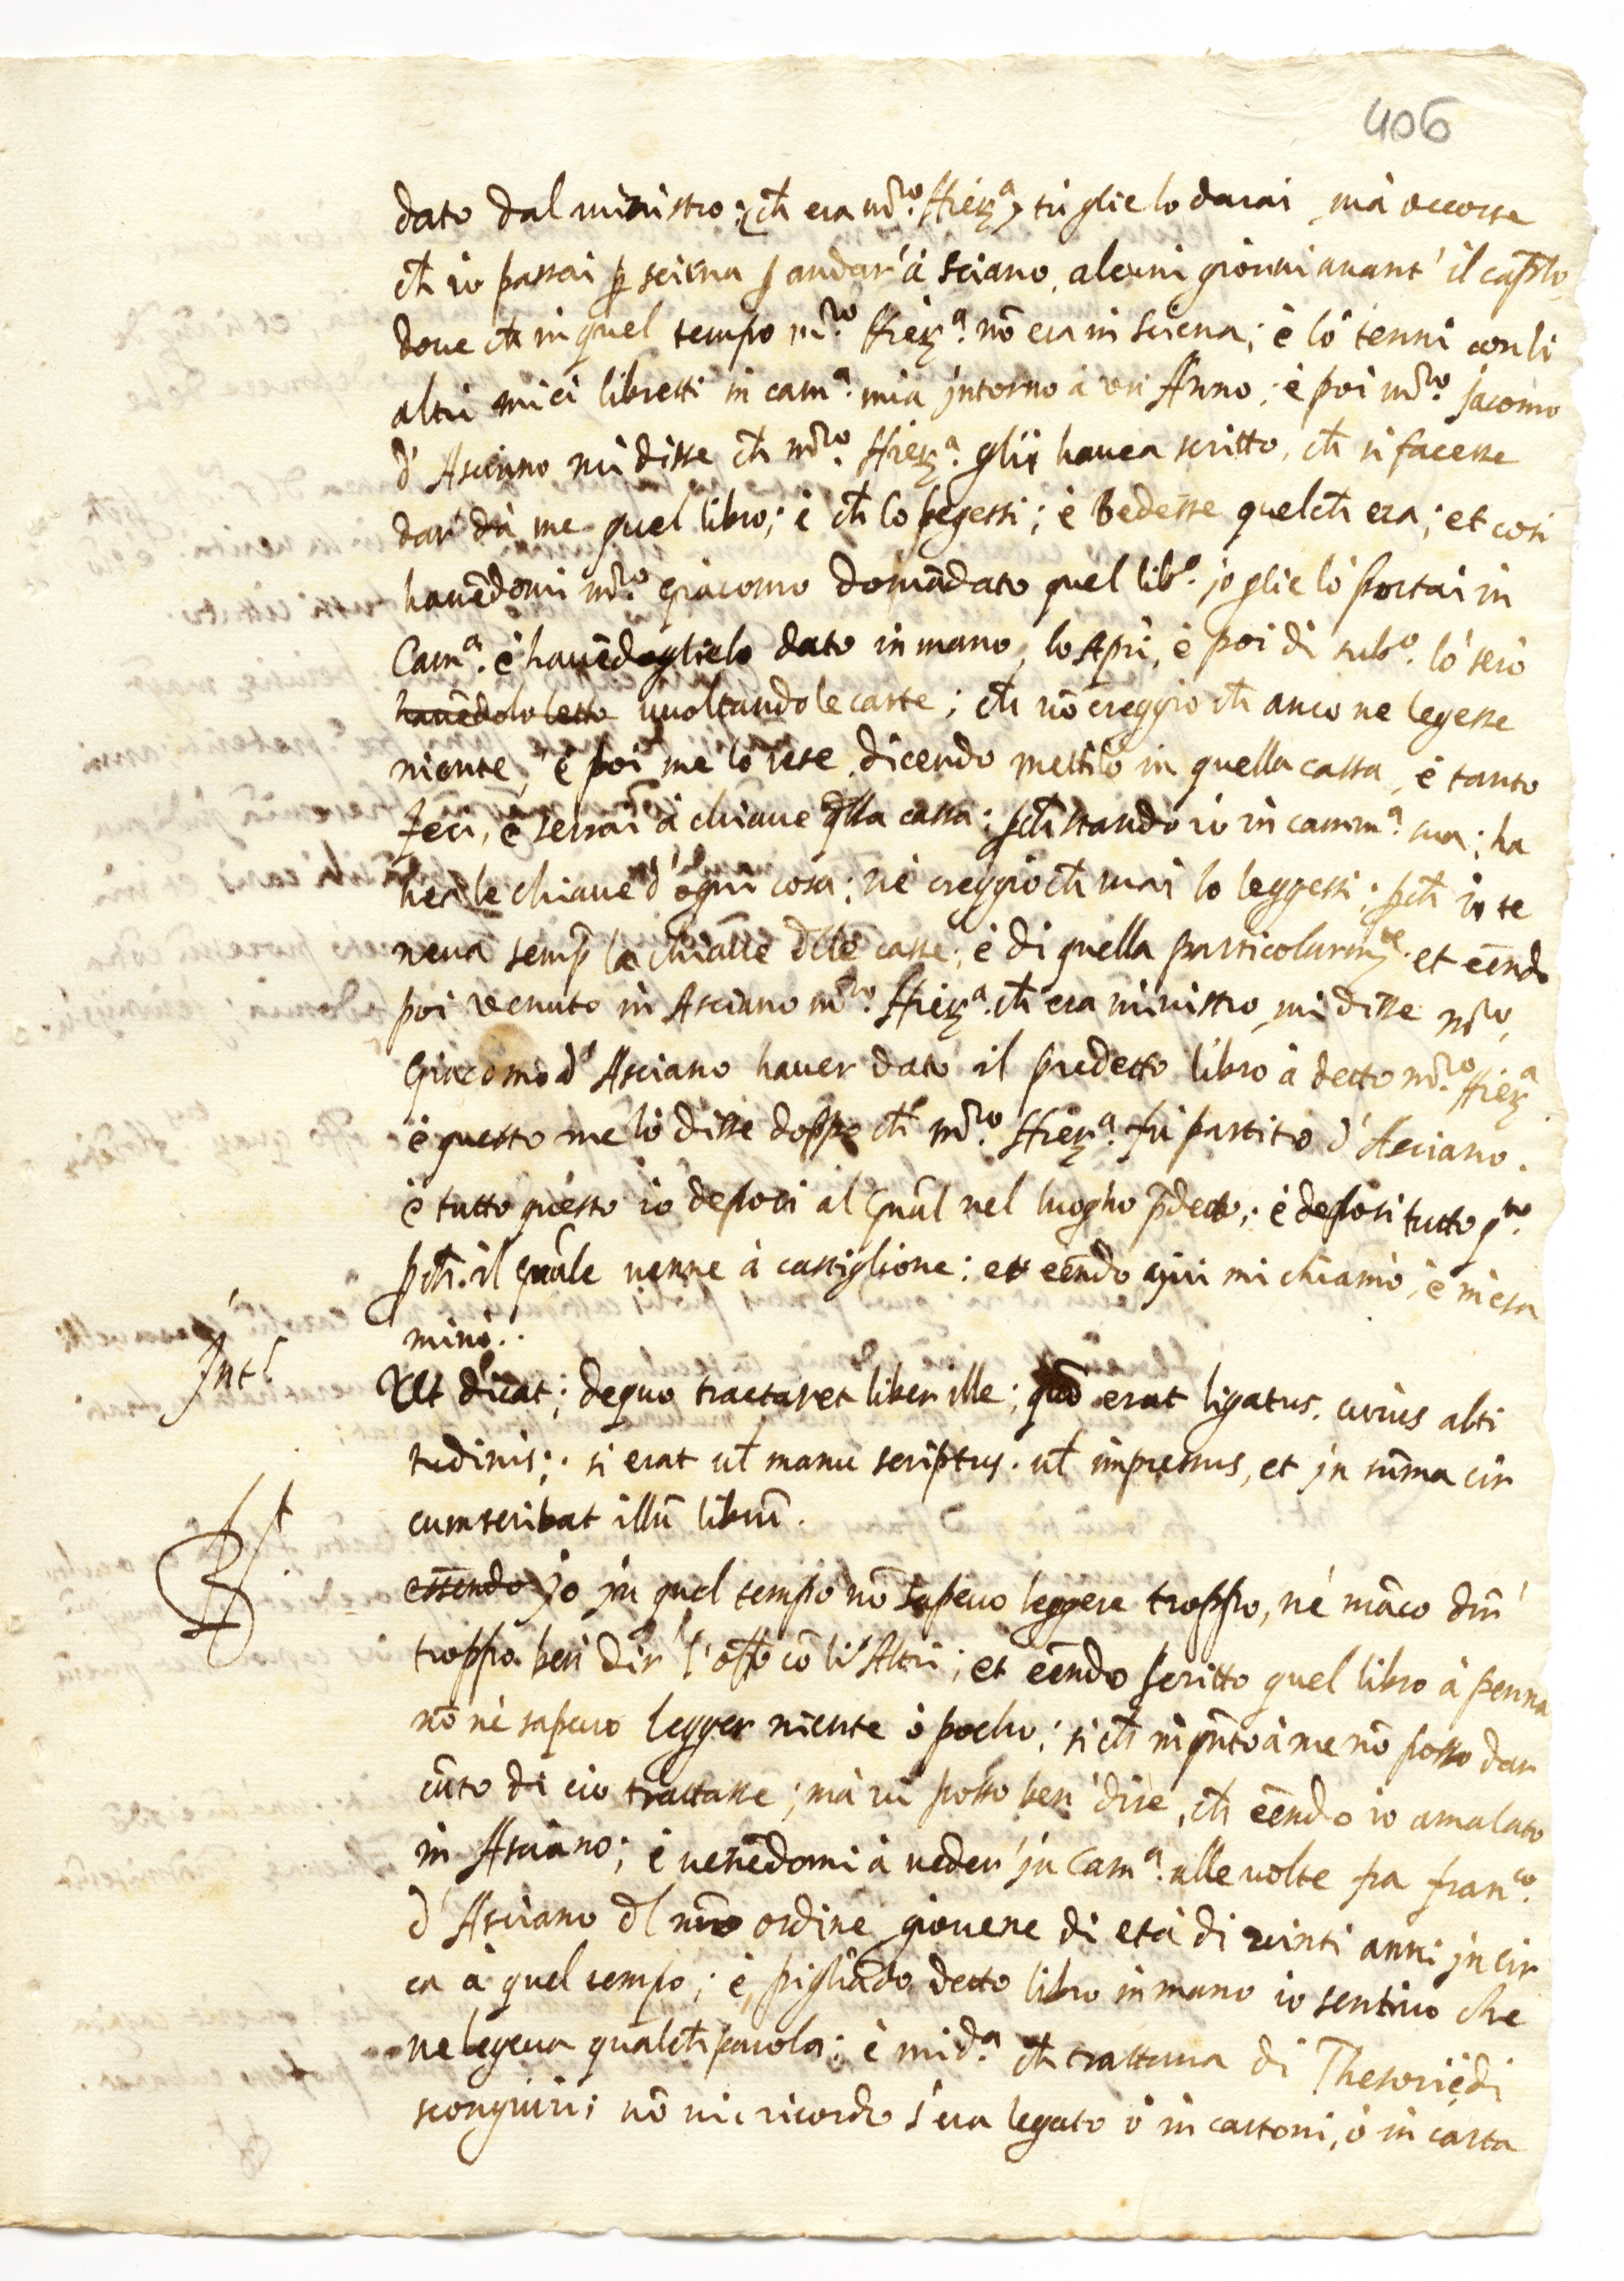 406
dato dal ministro; ch̄ era m̄ro. Hierᵃ, tù glielo darai, mà occorse
ch̄ io passai ꝑ sciena ꝑ andar' à Sciano, alcuni giorni avant' il cap̄lo,
dove ch̄ in quel tempo m̄ro. Hierᵃ. nō era in sciena; è lo tenni con li
altri miei libretti in camᵃ. mia jntorno à un' Anno; è poi m̄ro. Jacomo
d' Asciano mi disse ch̄ m̄ro. Hierᵃ. glii havea scritto, ch̄ si facesse
dar' dà me quel libro; è ch̄ lo legessi; è vedesse quelch̄ era; et cosi
havēdomi m̄ro. Giacomo domādato quel libᵒ. jo glielò portai in
Camᵃ. è havēdoglielo dato in mano, lo Aprì, è poi di subᵒ. lò serò
havēdolo letto vuoltando le carte; ch̄ nō creggio ch̄ anco ne legesse
niente, è poi me lo rese dicendo mettilo in quella cassa, è tanto
feci, è serrai à chiave q̄lla cassa; ꝑch̄ stando io in camm̄ᵃ. sua; ha
vea le chiave d' ogni cosa; nè creggio ch̄ mai lo leggessi; ꝑch̄ io te
neva semp̄ le chiave d̄le casse; è di quella particolarmᵗᵉ. et eēndo
poi venuto in Asciano m̄ro. Hierᵃ. ch̄ era ministro, mi disse m̄ro.
Giacomo d' Asciano haver dato il predetto libro à detto m̄ro. Hierᵃ
è questo me lo disse doppo ch̄ m̄ro. Hierᵃ. fù partito d' Asciano.
è tutto questo io deposi al Gn̄al nel luogho p̄detto; è deposi tutto qᵗᵒ.
ꝑch̄. il qūale venne à castiglione; et eēndo qui mi chiamò, è m'esa
minò.
Int.
Ut dicat; de quo tractaret liber ille; quō erat ligatus. cuius alti
tudinis; si erat ul̄ manu scriptus. ul̄ impressus, et jn sūma cir
cumscribat illū librū.
Rt
essendo jo jn quel tempo nō sapevo leggere troppo, né māco dir'
troppo ben dir' l' offo cō li Altri; et eēndo scritto quel libro à penna
nō nè sapevo legger niente ò pocho; si ch̄ in qūto à me nō posso dar
cūto di cio trattasse; mà vi posso ben' dire, ch̄ eēndo io amalato
in Asciano; è venēdomi à veder' jn Camᵃ. alle volte fra franᶜᵒ.
d' Asciano d̄l nr̄o ordine giovene di età di vinti anni jn cir
ca à quel tempo; è, pigliādo detto libro in mano io sentivo che
ne legeva qualch̄ parola; è mi dᵃ. ch̄ trattava di Thesori è di
scongiuri; nō mi ricordo s' era legato ò in cartoni, ò in carta